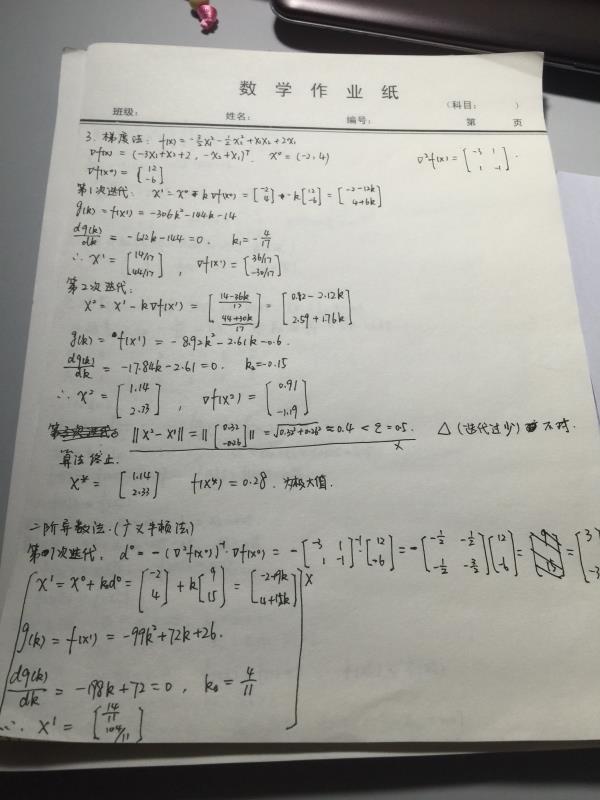 数学作业纸
班级: 姓名: 编号: (科目: ) 第 页
3. 梯度法: f(x) = -3/2 x₁² - 1/2 x₂² + x₁x₂ + 2x₁
∇f(x) = (-3x₁+x₂+2, -x₂+x₁)ᵀ. x⁰ = (-2, 4) ∇²f(x) = [-3 1; 1 -1].
∇f(x⁰) = [12; -6]
第1次迭代: x¹ = x⁰ - k∇f(x⁰) = [-2; 4] - k[12; -6] = [-2-12k; 4+6k]
g(k) = f(x¹) = -306k² - 144k - 14
dg(k)/dk = -612k - 144 = 0. k₁ = -4/17
∴ x¹ = [14/17; 44/17], ∇f(x¹) = [36/17; -30/17]
第2次迭代:
x² = x¹ - k∇f(x¹) = [(14-36k)/17; (44+30k)/17] = [0.82-2.12k; 2.59+1.76k]
g(k) = f(x¹) = -8.92k² - 2.61k - 0.6.
dg(k)/dk = -17.84k - 2.61 = 0. k₂ = -0.15
∴ x² = [1.14; 2.33], ∇f(x²) = [0.91; -1.19]
||x² - x¹|| = ||[0.32; -0.26]|| = √(0.32²+0.26²) ≈ 0.4 < ε = 0.5. △ (迭代过少) 不对.
算法终止. ×
x* = [1.14; 2.33] f(x*) = 0.28. 为极大值.
二阶导数法. (广义牛顿法)
第1次迭代. d⁰ = -(∇²f(x⁰))⁻¹·∇f(x⁰) = -[-3 1; 1 -1]⁻¹·[12; -6] = -[-1/2 -1/2; -1/2 -3/2][12; -6] = [9; 15] = [3; -3
x¹ = x⁰ + kd⁰ = [-2; 4] + k[9; 15] = [-2+9k; 4+15k] ×
g(k) = f(x¹) = -99k² + 72k + 26.
dg(k)/dk = -198k + 72 = 0, k₀ = 4/11
∴ x¹ = [14/11; 104/11]